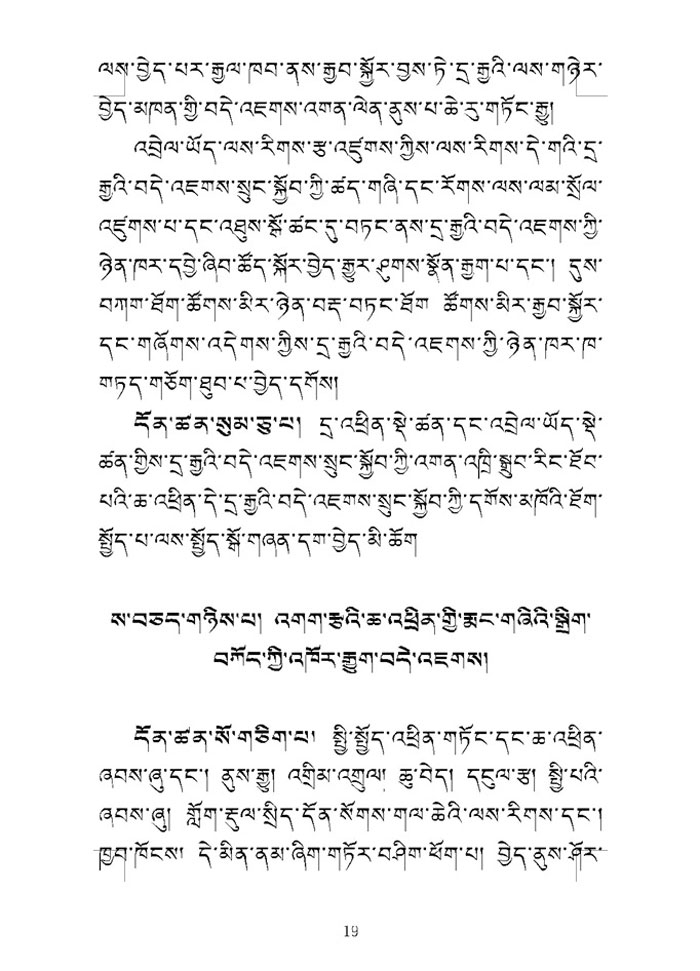 ལས་བྱེད་པར་རྒྱལ་ཁབ་ནས་རྒྱབ་སྐྱོར་བྱས་ཏེ་དྲ་རྒྱའི་ལས་གཉེར་
བྱེད་མཁན་གྱི་བདེ་འཇགས་འགན་ལེན་ནུས་པ་ཆེ་རུ་གཏོང་རྒྱུ།
འབྲེལ་ཡོད་ལས་རིགས་རྩ་འཛུགས་ཀྱིས་ལས་རིགས་དེ་གའི་དྲ་
རྒྱའི་བདེ་འཇགས་སྲུང་སྐྱོབ་ཀྱི་ཚད་གཞི་དང་རོགས་ལས་ལམ་སྲོལ་
འཛུགས་པ་དང་འཐུས་སྒོ་ཚང་དུ་བཏང་ནས་དྲ་རྒྱའི་བདེ་འཇགས་ཀྱི་
ཉེན་ཁར་དབྱེ་ཞིབ་ཚོད་སྐོར་བྱེད་རྒྱུར་ཤུགས་སྣོན་རྒྱག་པ་དང་། དུས་
བཀག་ཐོག་ཚོགས་མིར་ཉེན་བརྡ་བཏང་ཐོག ཚོགས་མིར་རྒྱབ་སྐྱོར་
དང་གཞོགས་འདེགས་ཀྱིས་དྲ་རྒྱའི་བདེ་འཇགས་ཀྱི་ཉེན་ཁར་ཁ་
གཏད་གཅོག་ཐུབ་པ་བྱེད་དགོས།
དོན་ཚན་སུམ་ཅུ་པ། དྲ་འཕྲིན་སྡེ་ཚན་དང་འབྲེལ་ཡོད་སྡེ་
ཚན་གྱིས་དྲ་རྒྱའི་བདེ་འཇགས་སྲུང་སྐྱོབ་ཀྱི་འགན་འཁྲི་སྒྲུབ་རིང་ཐོབ་
པའི་ཆ་འཕྲིན་དེ་དྲ་རྒྱའི་བདེ་འཇགས་སྲུང་སྐྱོབ་ཀྱི་དགོས་མཁོའི་ཐོག་
སྤྱོད་པ་ལས་སྤྱོད་སྒོ་གཞན་དག་བྱེད་མི་ཆོག
ས་བཅད་གཉིས་པ། འགག་རྩའི་ཆ་འཕྲིན་གྱི་རྨང་གཞིའི་སྒྲིག་
བཀོད་ཀྱི་འཁོར་རྒྱུག་བདེ་འཇགས།
དོན་ཚན་སོ་གཅིག་པ། སྤྱི་སྤྱོད་འཕྲིན་གཏོང་དང་ཆ་འཕྲིན་
ཞབས་ཞུ་དང་། ནུས་རྒྱུ། འགྲིམ་འགྲུལ། ཆུ་བེད། དངུལ་རྩ། སྤྱི་པའི་
ཞབས་ཞུ། གློག་རྡུལ་སྲིད་དོན་སོགས་གལ་ཆེའི་ལས་རིགས་དང་།
ཁྱབ་ཁོངས། དེ་མིན་ནམ་ཞིག་གཏོར་བཤིག་ཕོག་པ། བྱེད་ནུས་ཤོར་
19